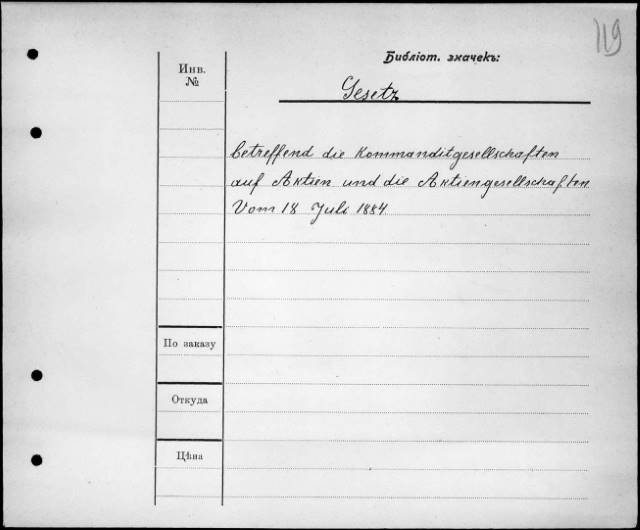 119
Библіот. значекъ:
Инв.
№
Gesetz
betreffend die Kommanditgesellschaften
auf Aktien und die Aktiengesellschaften
Vom 18 Juli 1884.
По заказу
Откуда
Цѣна